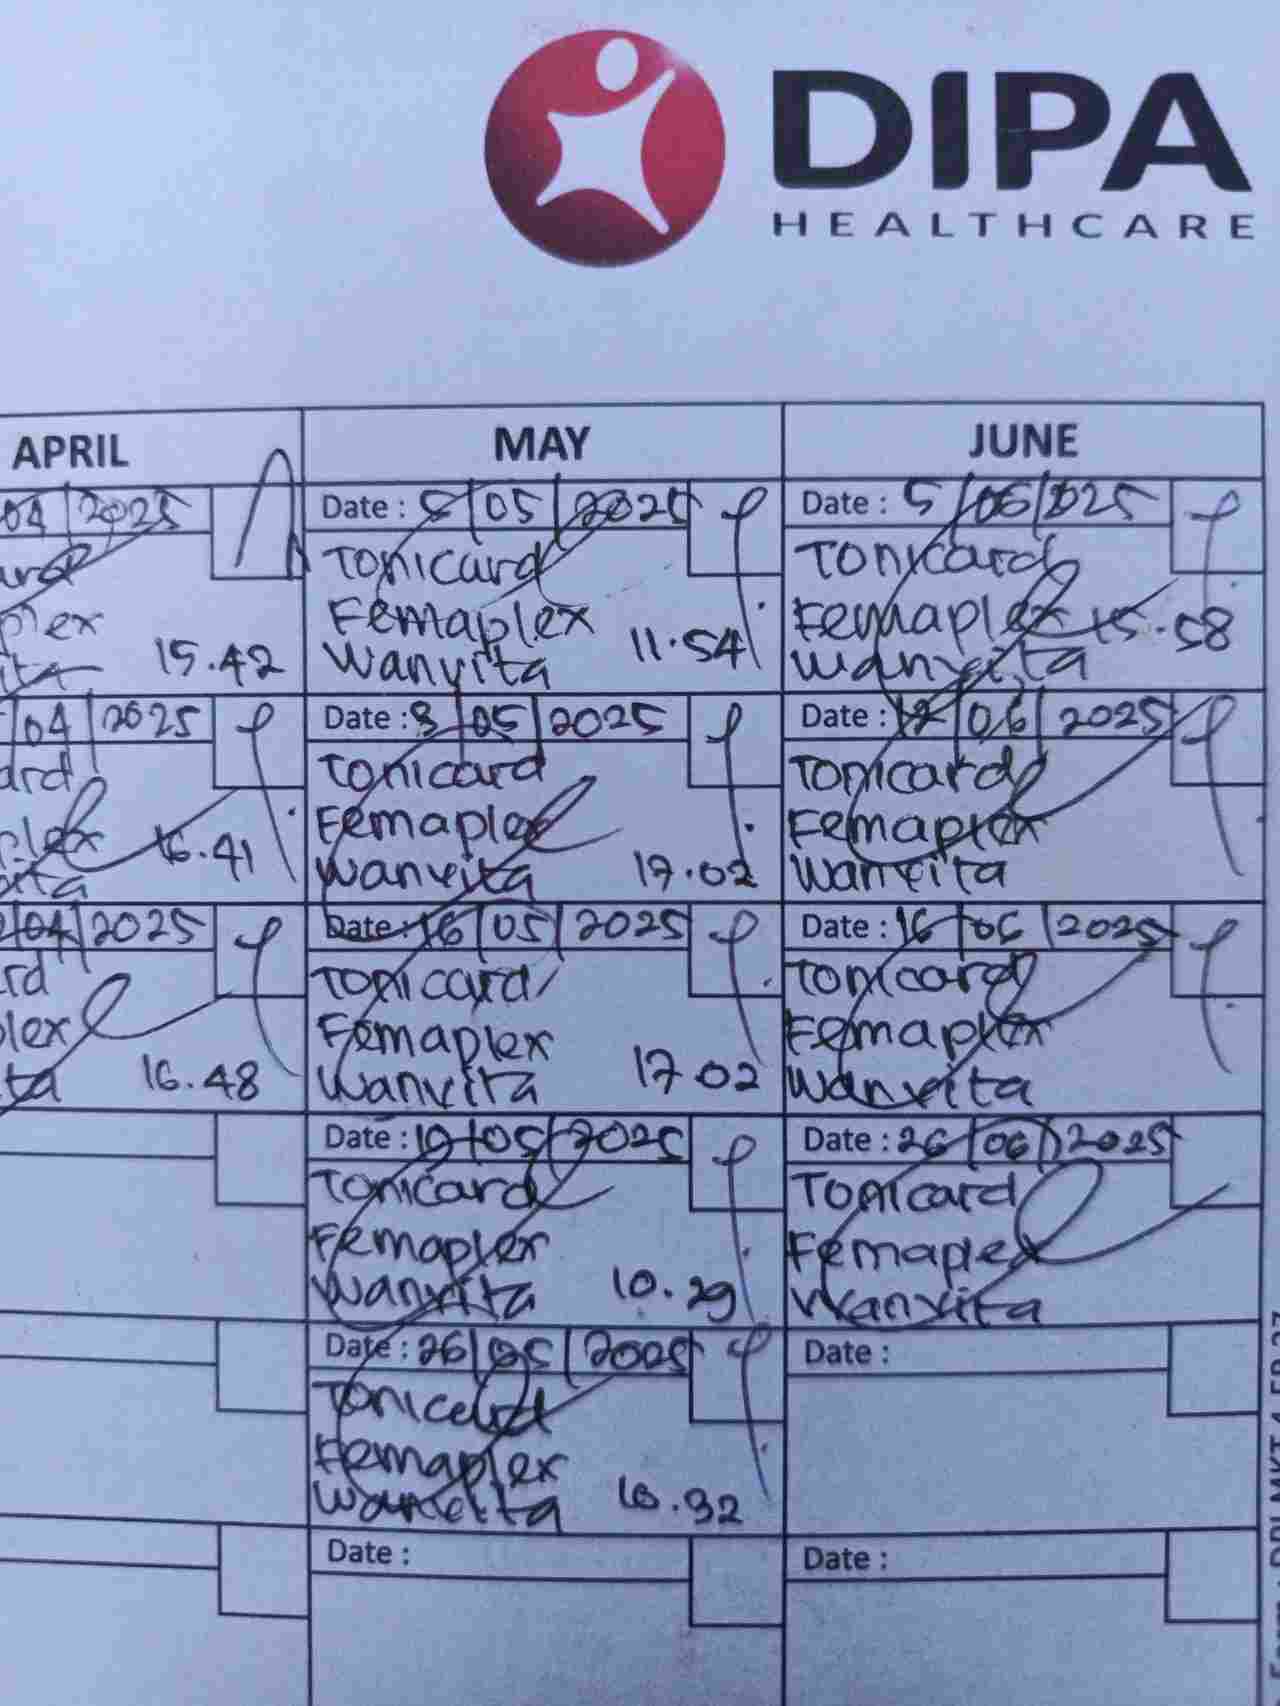 DIPA
HEALTHCARE
APRIL
MAY
JUNE
04/2025
ard
plex
ita
15.42
Date : 5/05/2025
Tonicard
Femaplex
Wanvita
11.54
Date : 5/06/2025
Tonicard
Femaplex
Wanvita
15.58
/04/2025
ard
plex
vita
16.41
Date : 8/05/2025
Tonicard
Femaplex
Wanvita
17.02
Date : 12/06/2025
Tonicard
Femaplex
Wanvita
/04/2025
rd
plex
ta
16.48
Date : 16/05/2025
Tonicard
Femaplex
Wanvita
17.02
Date : 16/06/2025
Tonicard
Femaplex
Wanvita
Date : 19/05/2025
Tonicard
Femaplex
Wanvita
10.29
Date : 26/06/2025
Tonicard
Femaplex
Wanvita
Date : 26/05/2025
Tonicard
Femaplex
Wanvita
Date :
Date :
Date :